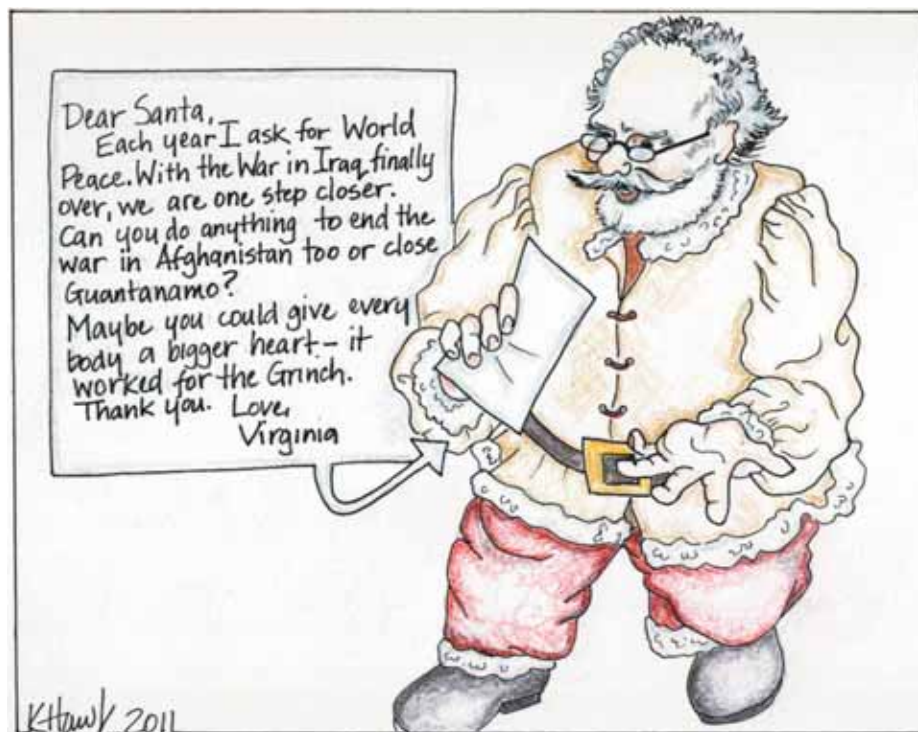 Dear Santa,
Each year I ask for World
Peace. With the War in Iraq finally
over, we are one step closer.
Can you do anything to end the
war in Afghanistan too or close
Guantanamo?
Maybe you could give every
body a bigger heart – it
worked for the Grinch.
Thank you. Love,
Virginia
KHawk 2011